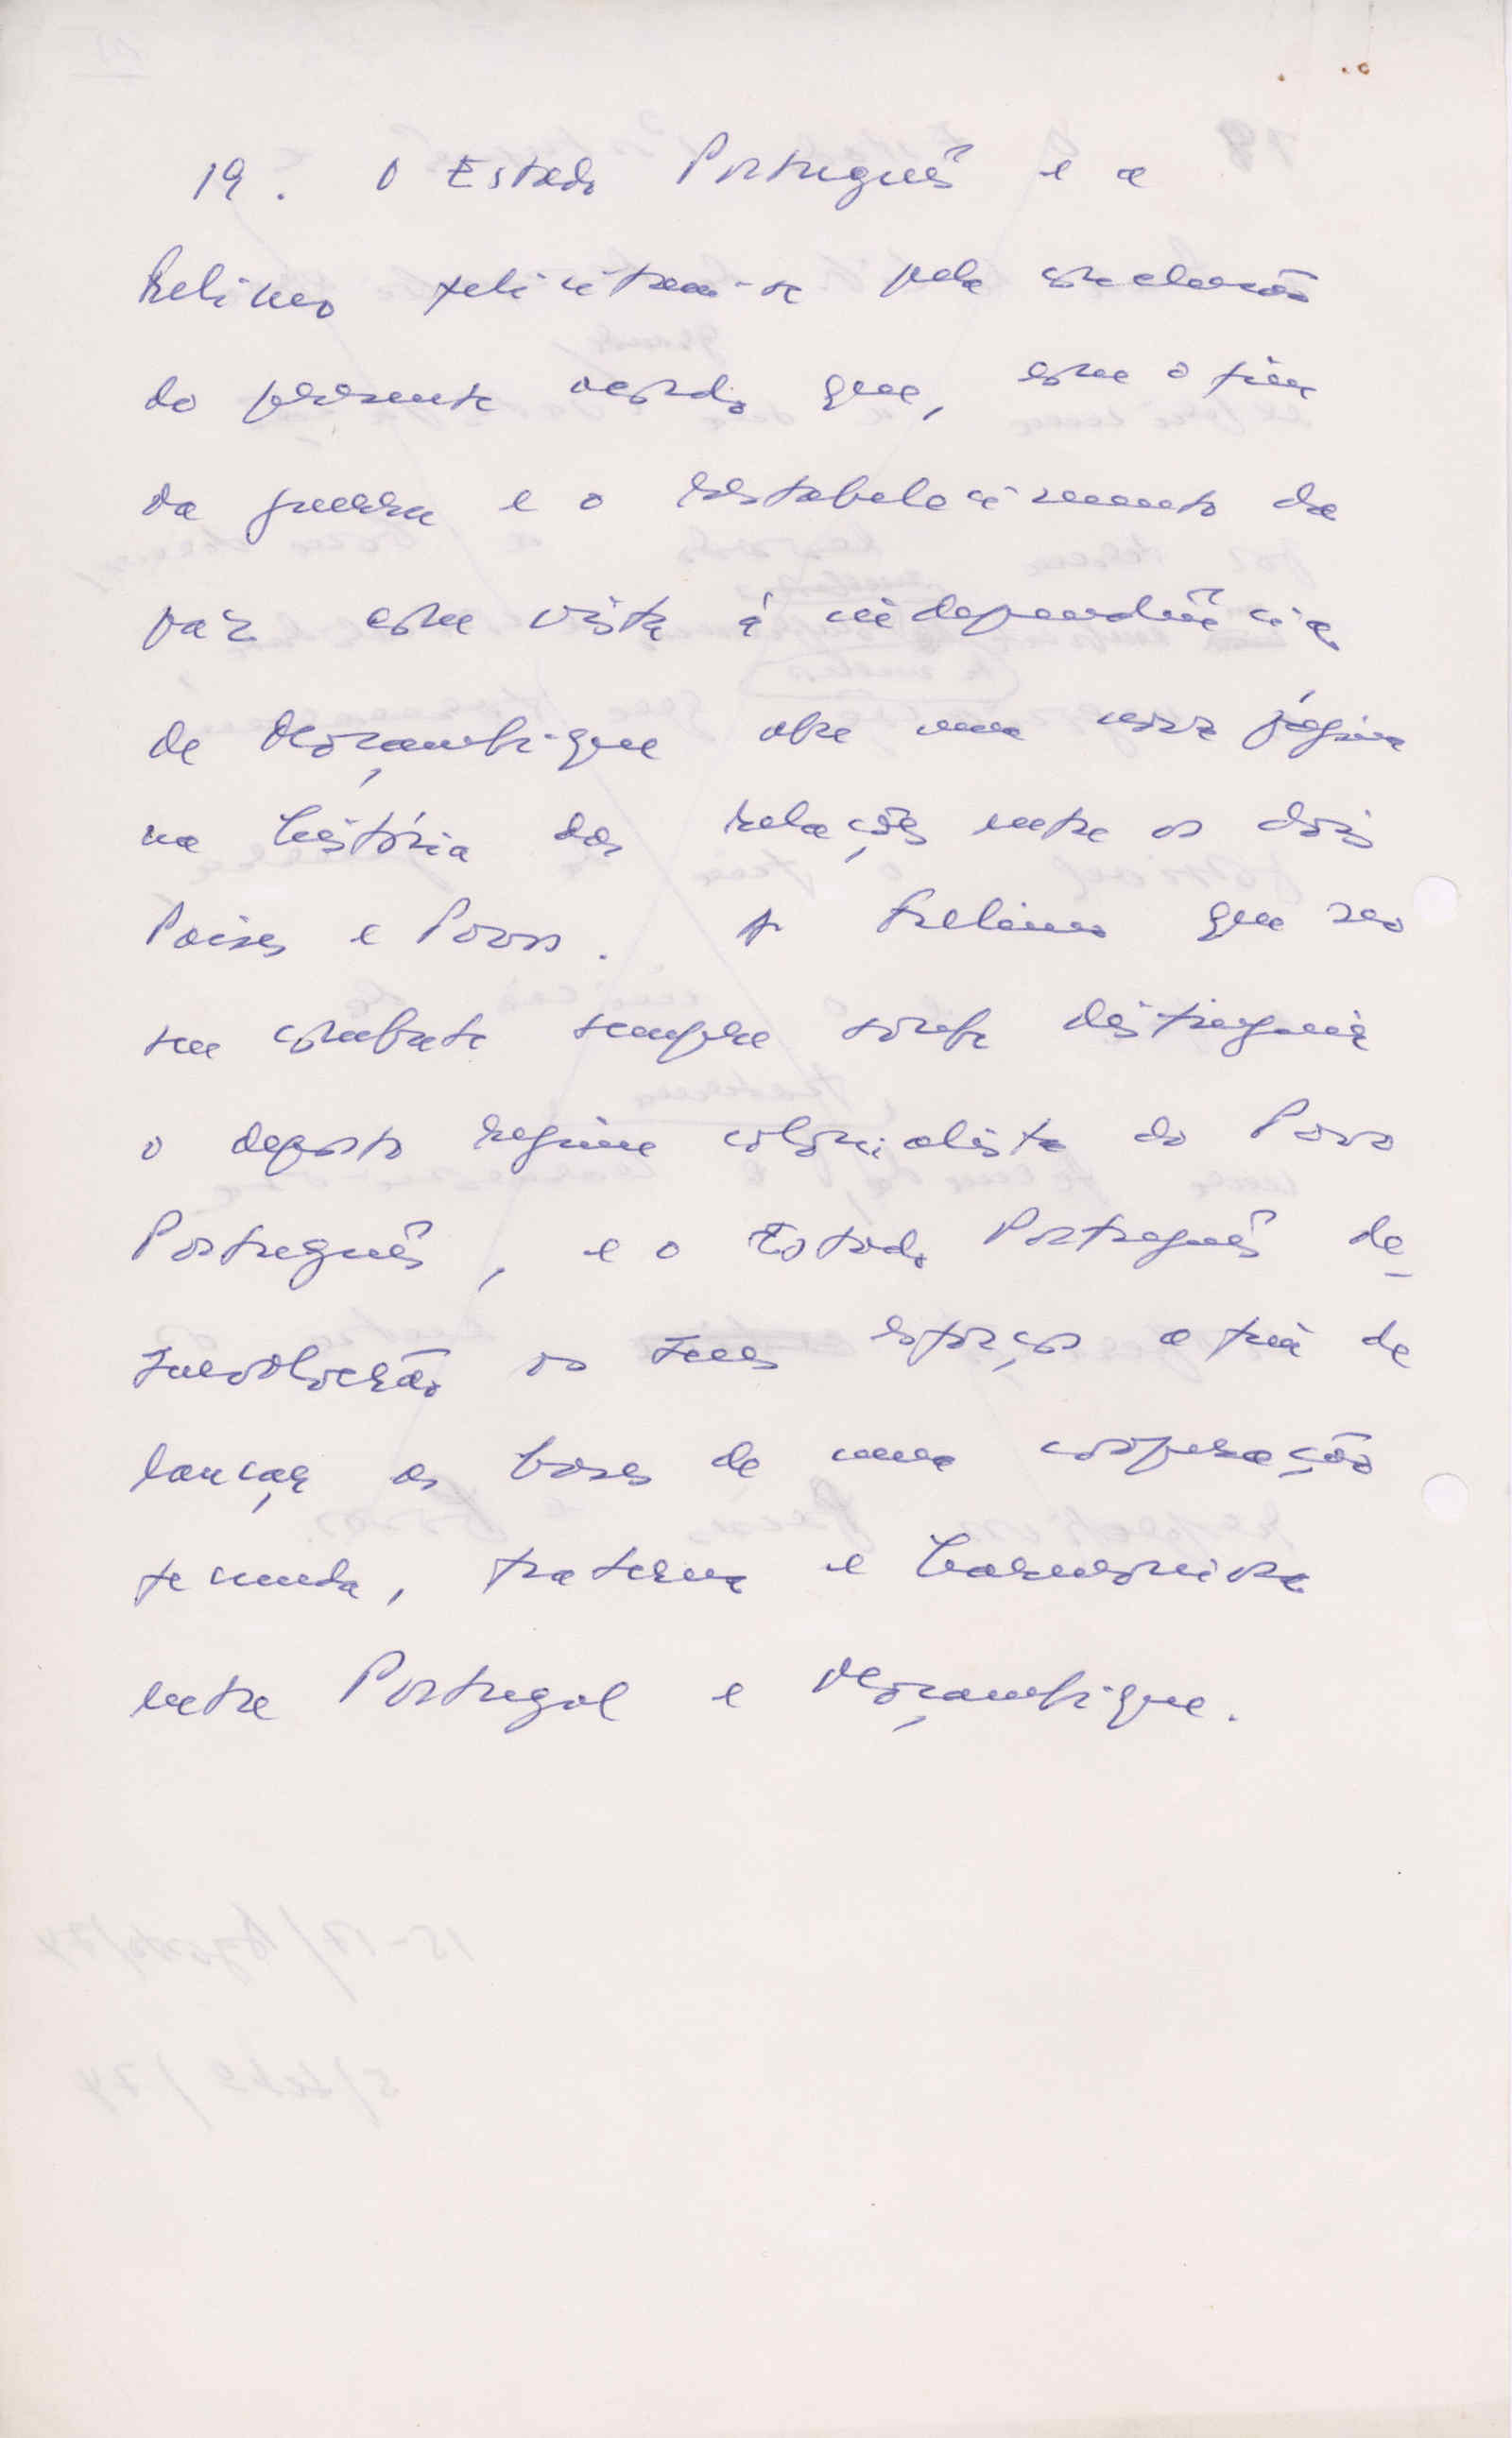 19. O Estado Português e a
Frelimo felicitam-se pela conclusão
do presente acordo que, com o fim
da guerra e o restabelecimento da
paz com vista à independência
de Moçambique abre uma nova página
na história das relações entre os dois
Países e Povos. A Frelimo que no
seu combate sempre soube distinguir
o deposto regime colonialista do Povo
Português, e o Estado Português de-
senvolverão os seus esforços a fim de
lançar as bases de uma cooperação
fecunda, fraterna e harmoniosa
entre Portugal e Moçambique.